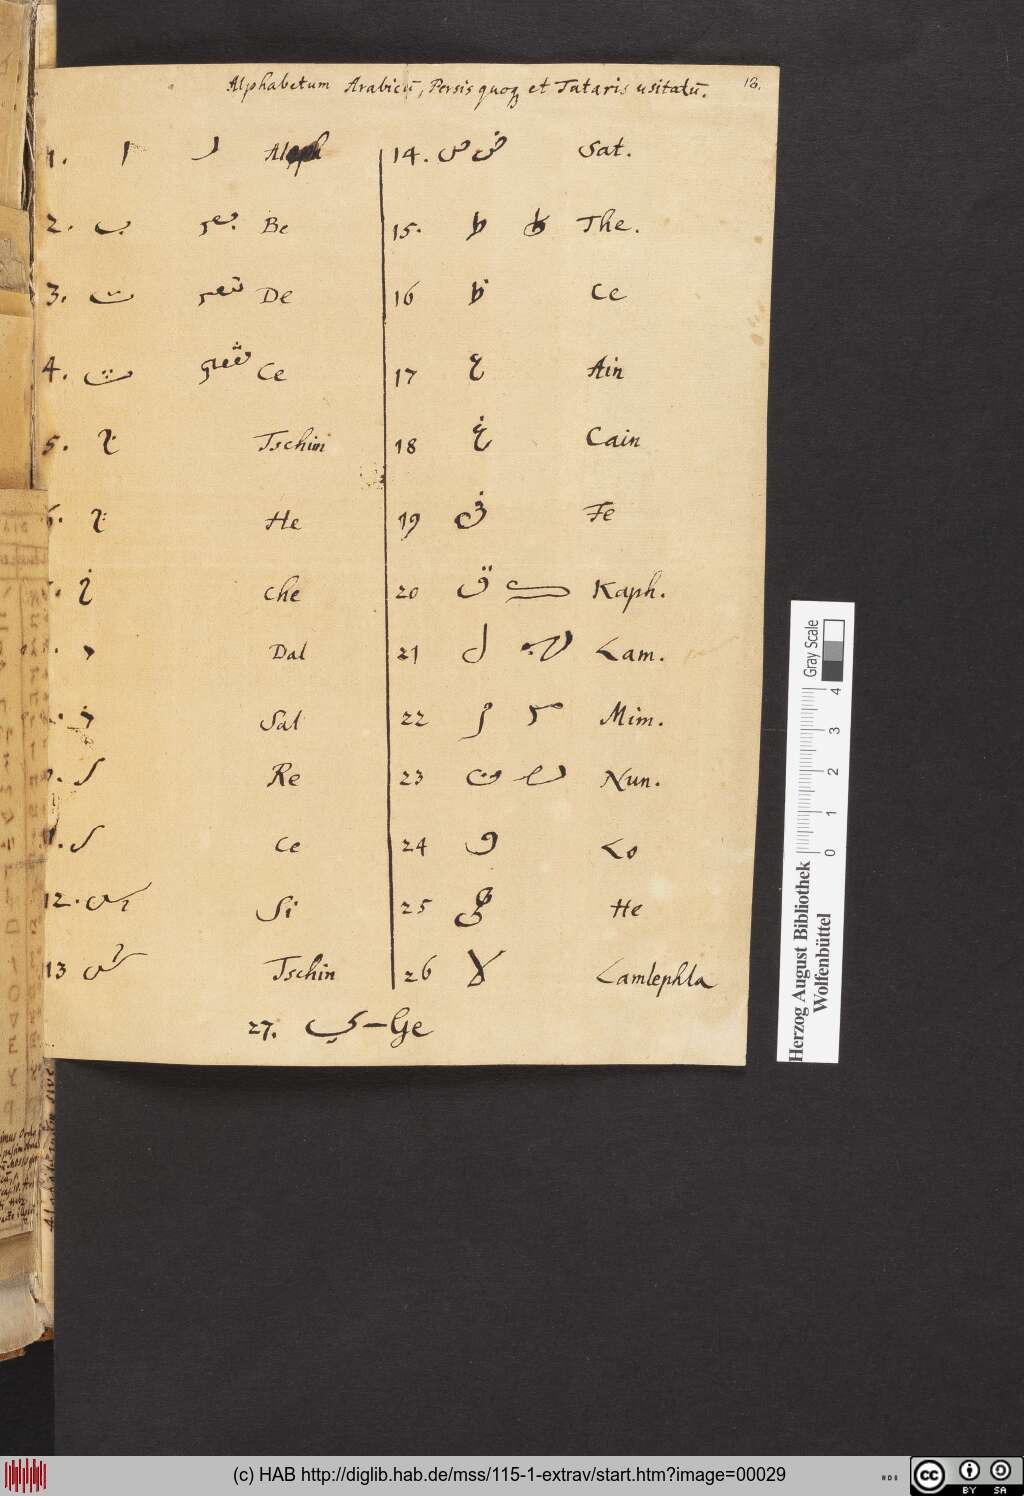 Alphabetum Arabicū, Persis quoq et Tataris usitatū.
18.
1. ا Aleph
2. ب Be
3. ت De
4. ث Ce
5. Tschim
6. He
che
Dal
Sal
Re
Ce
12. Si
13 Tschin
14. ص ض Sat.
15. ط The.
16 ظ Ce
17 ع Ain
18 غ Cain
19 ف Fe
20 ق Kaph.
21 ل Lam.
22 م Mim.
23 ن Nun.
24 و Lo
25 He
26 لا Lamlephla
27. ي – Ge
Gray Scale
0 1 2 3 4
Herzog August Bibliothek
Wolfenbüttel
(c) HAB http://diglib.hab.de/mss/115-1-extrav/start.htm?image=00029
cc BY SA